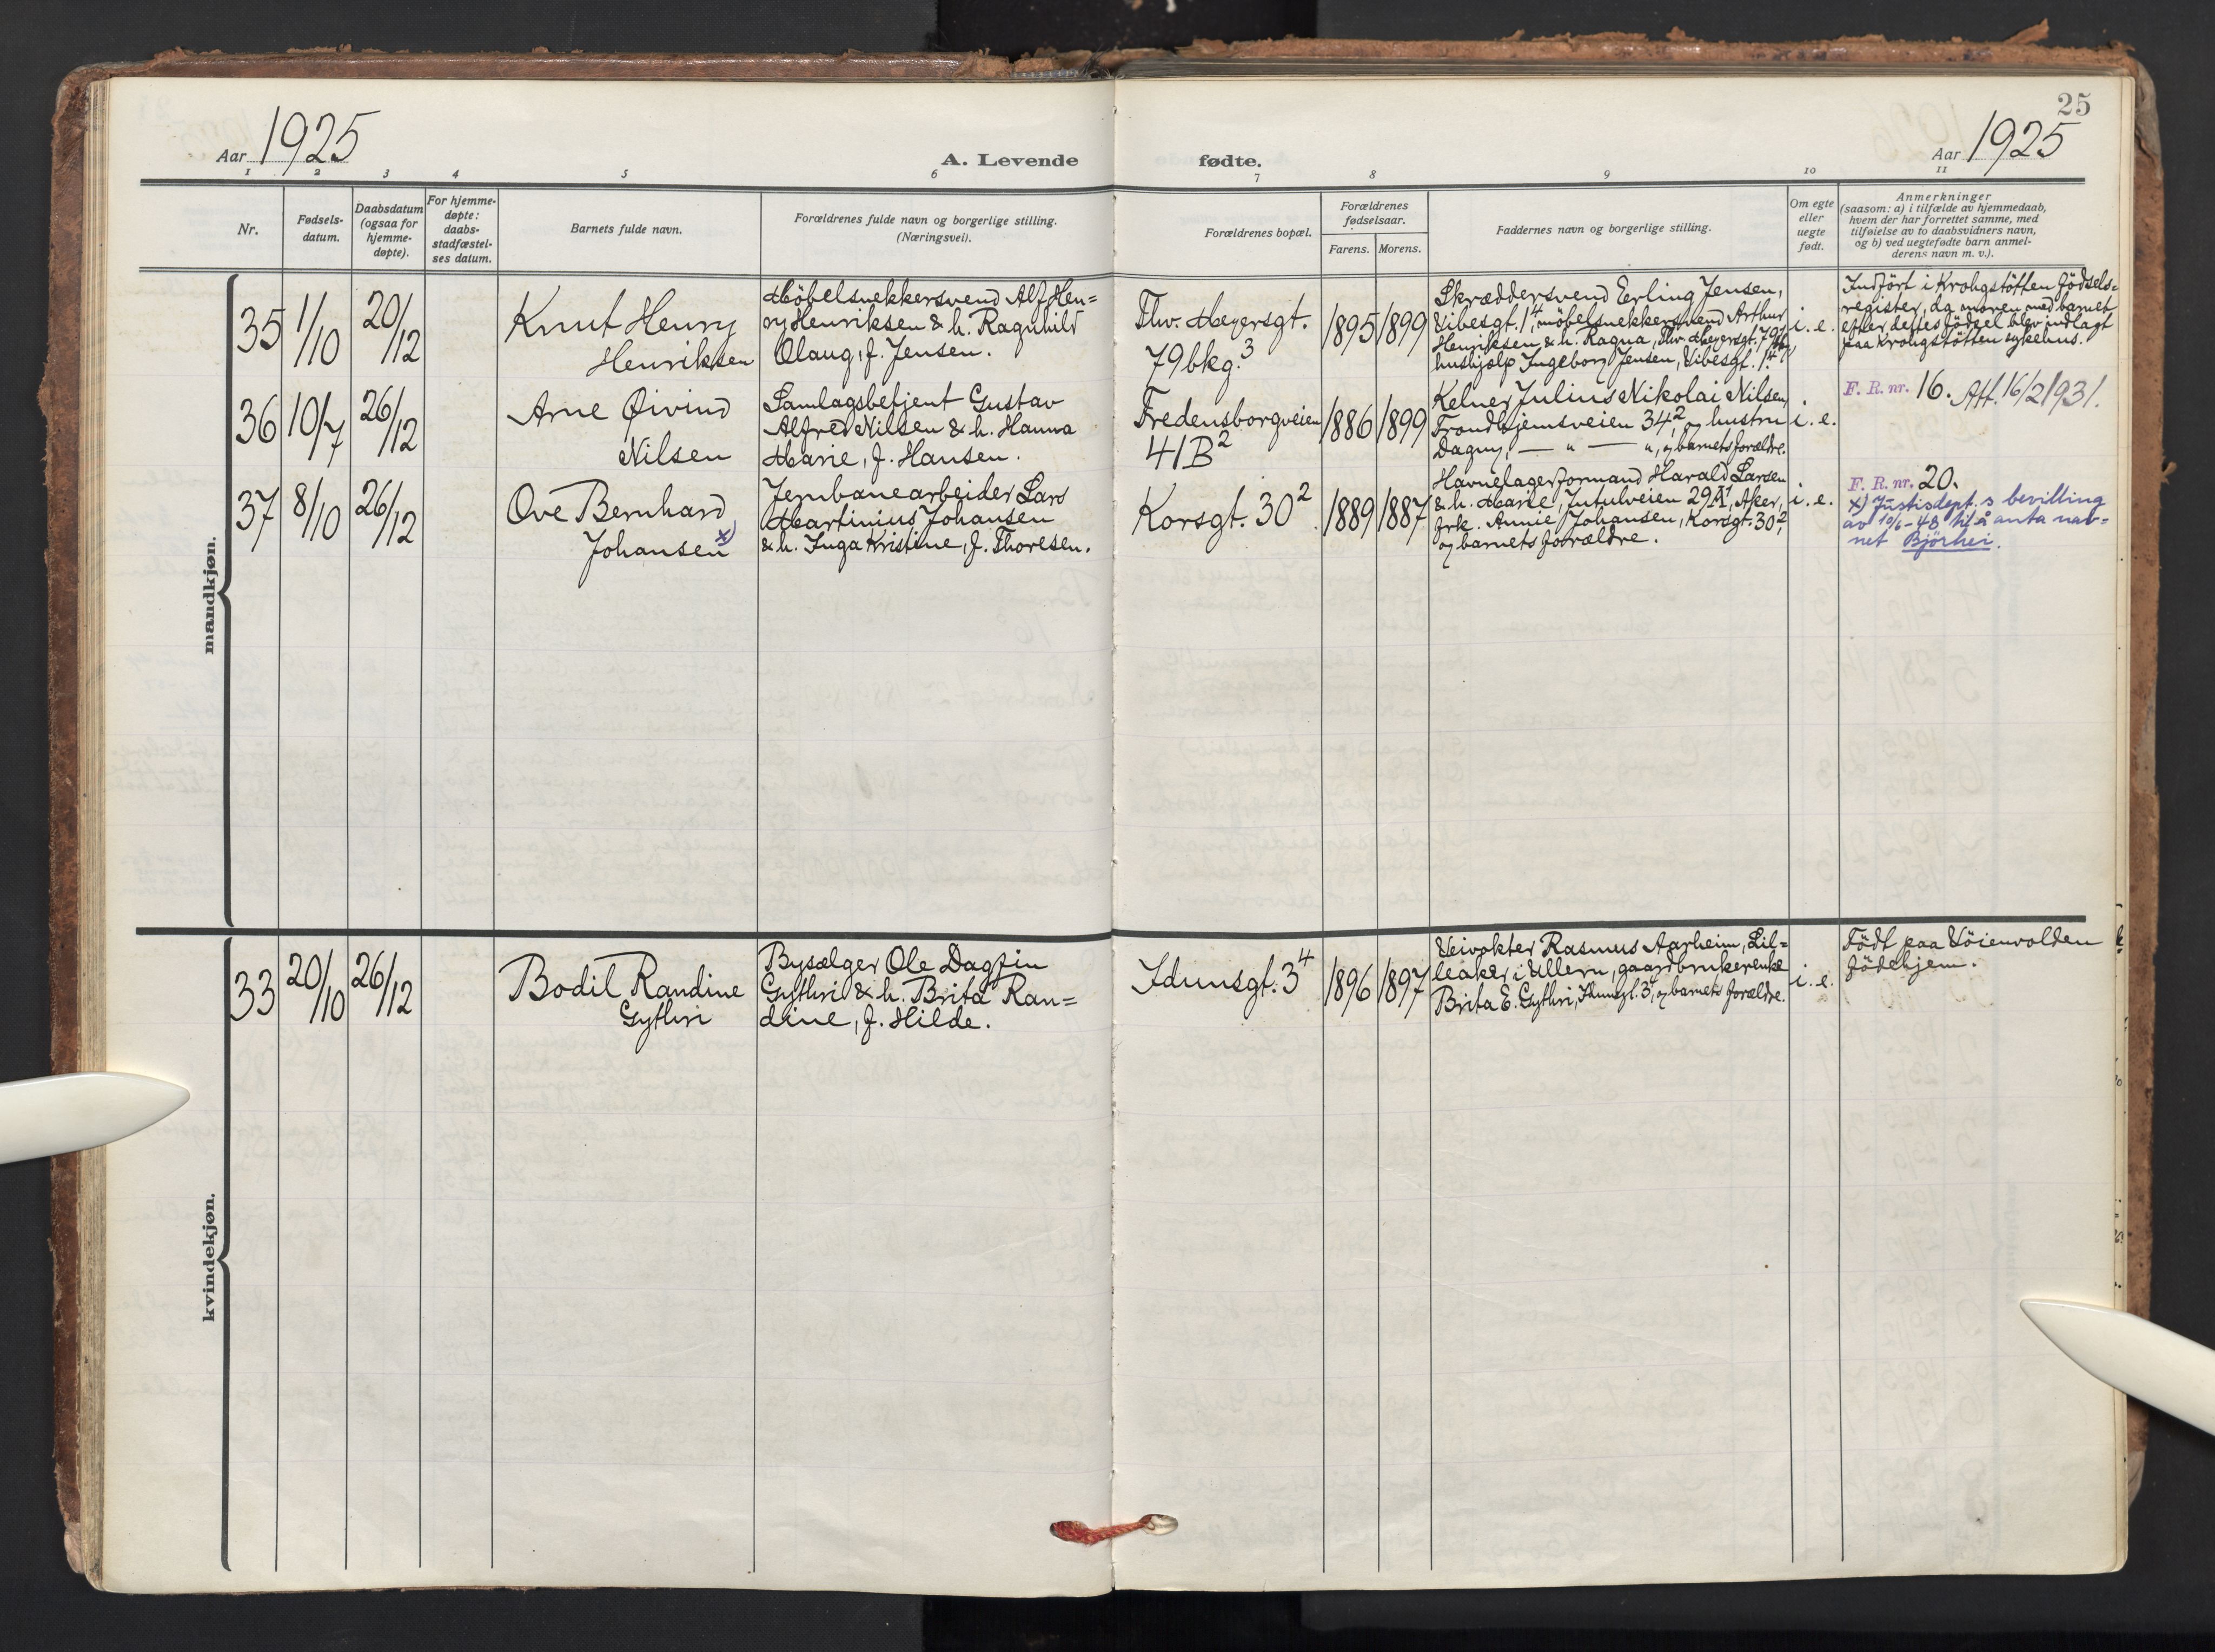 25
Aar 1925
A. Levende
fødte.
Aar 1925
1 2 3 4 5 6 7 8 9 10 11
Nr.
Fødsels-
datum.
Daabsdatum
(ogsaa for
hjemme-
døpte).
For hjemme-
døpte:
daabs-
stadfæstel-
ses datum.
Barnets fulde navn.
Forældrenes fulde navn og borgerlige stilling.
(Næringsvei).
Forældrenes bopæl.
Forældrenes
fødselsaar.
Farens. Morens.
Faddernes navn og borgerlige stilling.
Om egte
eller
uegte
født.
Anmerkninger
(saasom: a) i tilfælde av hjemmedaab,
hvem der har forrettet samme, med
tilføielse av to daabsvidners navn,
og b) ved uegtefødte barn anmel-
derens navn m. v.).
mandkjøn.
35
1/10
20/12
Knut Henry
Henriksen
Möbelsnekkersvend Alf Hen=
ry Henriksen & h. Ragnhild
Olaug, f. Jensen.
Thv. Meyersgt.
79 bkg.3
1895
1899
Skræddersvend Erling Jensen,
Vibesgt. 1 4, möbelsnekkersvend Arthur
Henriksen & h. Ragna, Thv. Meyersgt. 79
hushjelp Ingeborg Jensen, Vibesgt. 1.4
i. e.
Indfört i Krohgstötten födsels=
register, da moren med barnet
efter dettes födsel blev indlagt
paa Krohgstötten sykehus.
36
10/7
26/12
Arne Øivind
Nilsen
Samlagsbetjent Gustav
Alfred Nilsen & h. Hanna
Marie, f. Hansen.
Fredensborgveien
41B2
1886
1899
Kelner Julius Nikolai Nilsen,
Trondhjemsveien 34,2 og hustru
Dagny, — " — ", og barnets forældre.
i. e.
F. R. nr. 16. Att. 16/2 1931.
37
8/10
26/12
Ove Bernhard
Johansen x)
Jernbanearbeider Lars
Martinius Johansen
& h. Inga Kristine, f. Thoresen.
Korsgt. 30 2
1889
1887
Havnelagerformand Harald Larsen
& h. Marie, Jutulveien 29A1, Aker,
frk. Annie Johansen, Korsgt. 30 2,
og barnets forældre.
i. e.
F. R. nr. 20.
x) Justisdept.s bevilling
av 10/6-48 til å anta nav=
net Björhei.
kvindekjøn.
33
20/10
26/12
Bodil Randine
Gythri
Bysælger Ole Dagfin
Gythri & h. Brita Ran=
dine, f. Hilde.
Idunsgt. 3 4
1896
1897
Veivokter Rasmus Aarheim, Lil=
leaker i Ullern, gaardbrukerenke
Brita E. Gythri, Idunsgt. 3 4, og barnets forældre.
i. e.
Födt paa Vöienvolden
födehjem.